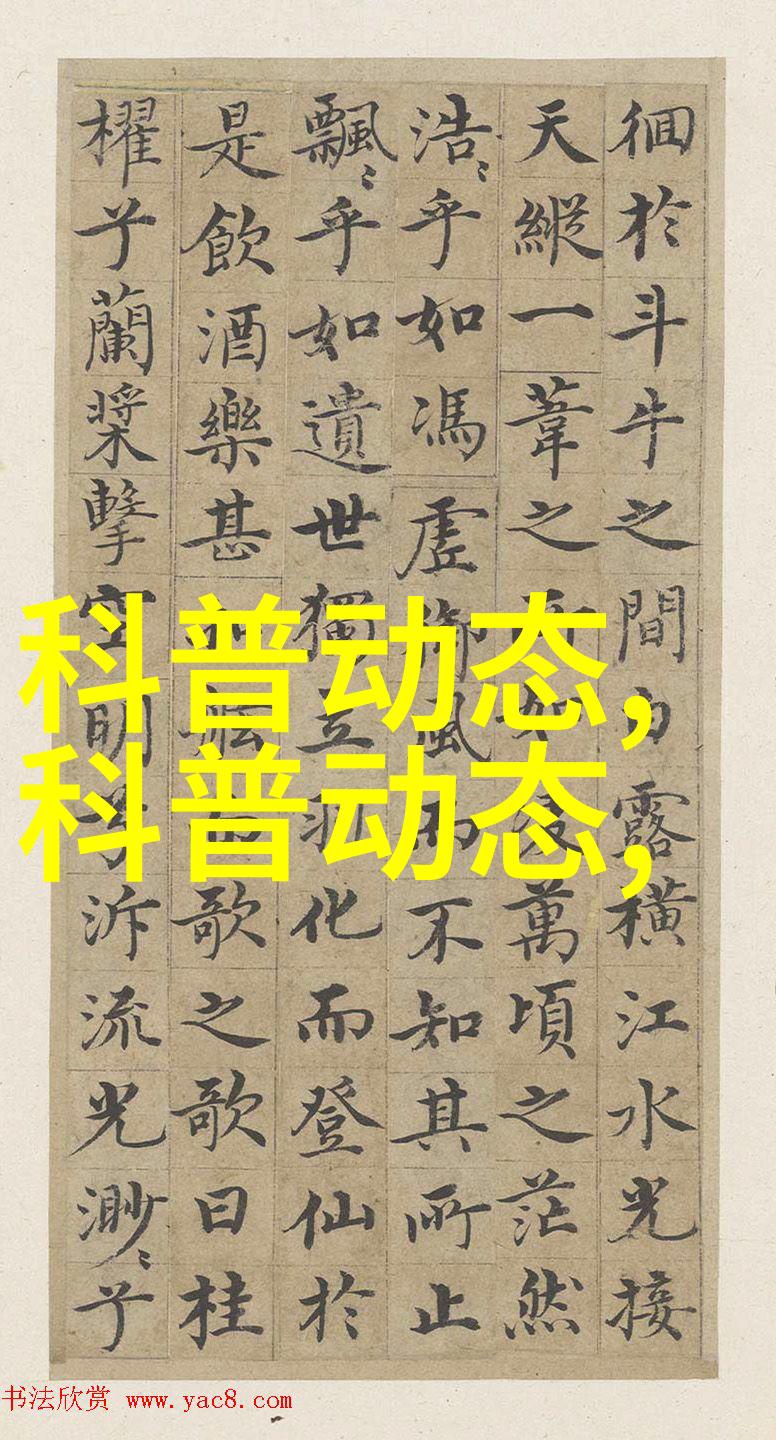 徊於斗牛之間白露橫江水光接
天縱一葦之所如凌萬頃之茫然
浩〻乎如馮虛御風而不知其所止
飄〻乎如遺世獨立羽化而登仙於
是飲酒樂甚扣舷而歌之歌曰桂
櫂兮蘭槳擊空明兮泝流光渺〻兮
科普动态,
科普动态,
书法欣赏 www.yac8.com